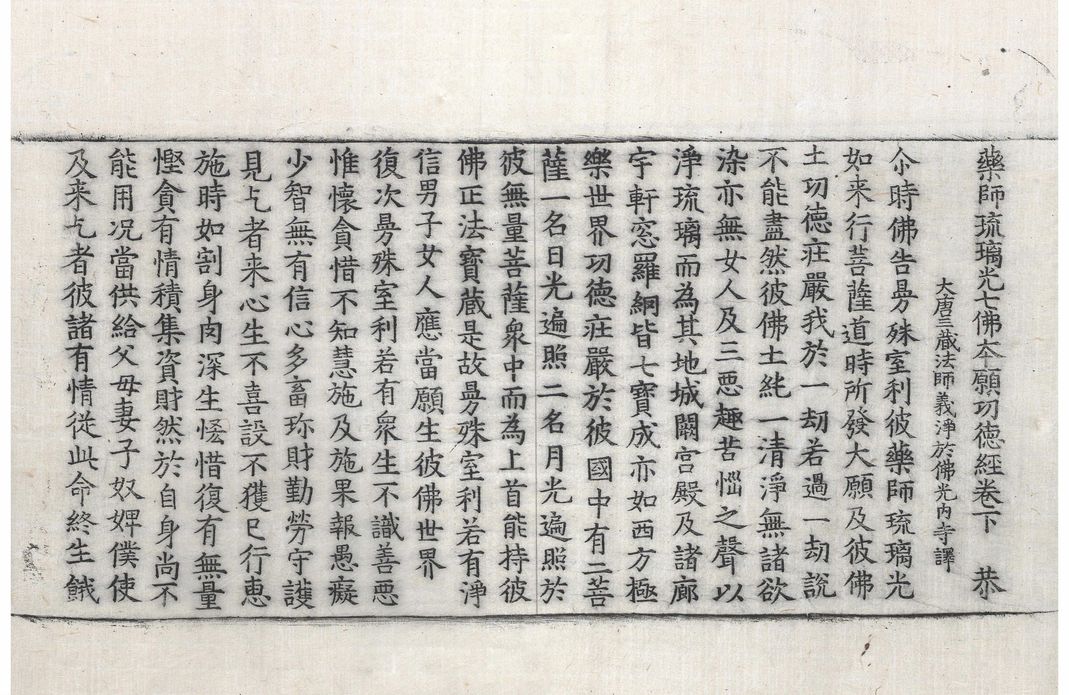 藥師琉璃光七佛夲願㓛徳經卷下　恭
大唐三蔵法師義淨於佛光內寺譯
尒時佛告㬅殊室利彼藥師琉璃光
如来行菩薩道時所發大願及彼佛
土㓛德莊嚴我於一劫若過一劫說
不能盡然彼佛土純一清淨無諸欲
染亦無女人及三悪趣苦惱之聲以
淨琉璃而為其地城闕宮殿及諸廊
宇軒窓羅網皆七寶成亦如西方極
樂世界㓛德莊嚴於彼國中有二菩
薩一名日光遍照二名月光遍照於
彼無量菩薩衆中而為上首能持彼
佛正法寶蔵是故㬅殊室利若有淨
信男子女人應當願生彼佛世界
復次㬅殊室利若有衆生不識善悪
惟懷貪惜不知惠施及施果報愚癡
少智無有信心多畜珎財勤勞守護
見乞者来心生不喜設不獲已行恵
施時如割身肉深生恡惜復有無量
慳貪有情積集資財然於自身尚不
能用况當供給父毋妻子奴婢僕使
及来乞者彼諸有情從此命終生餓